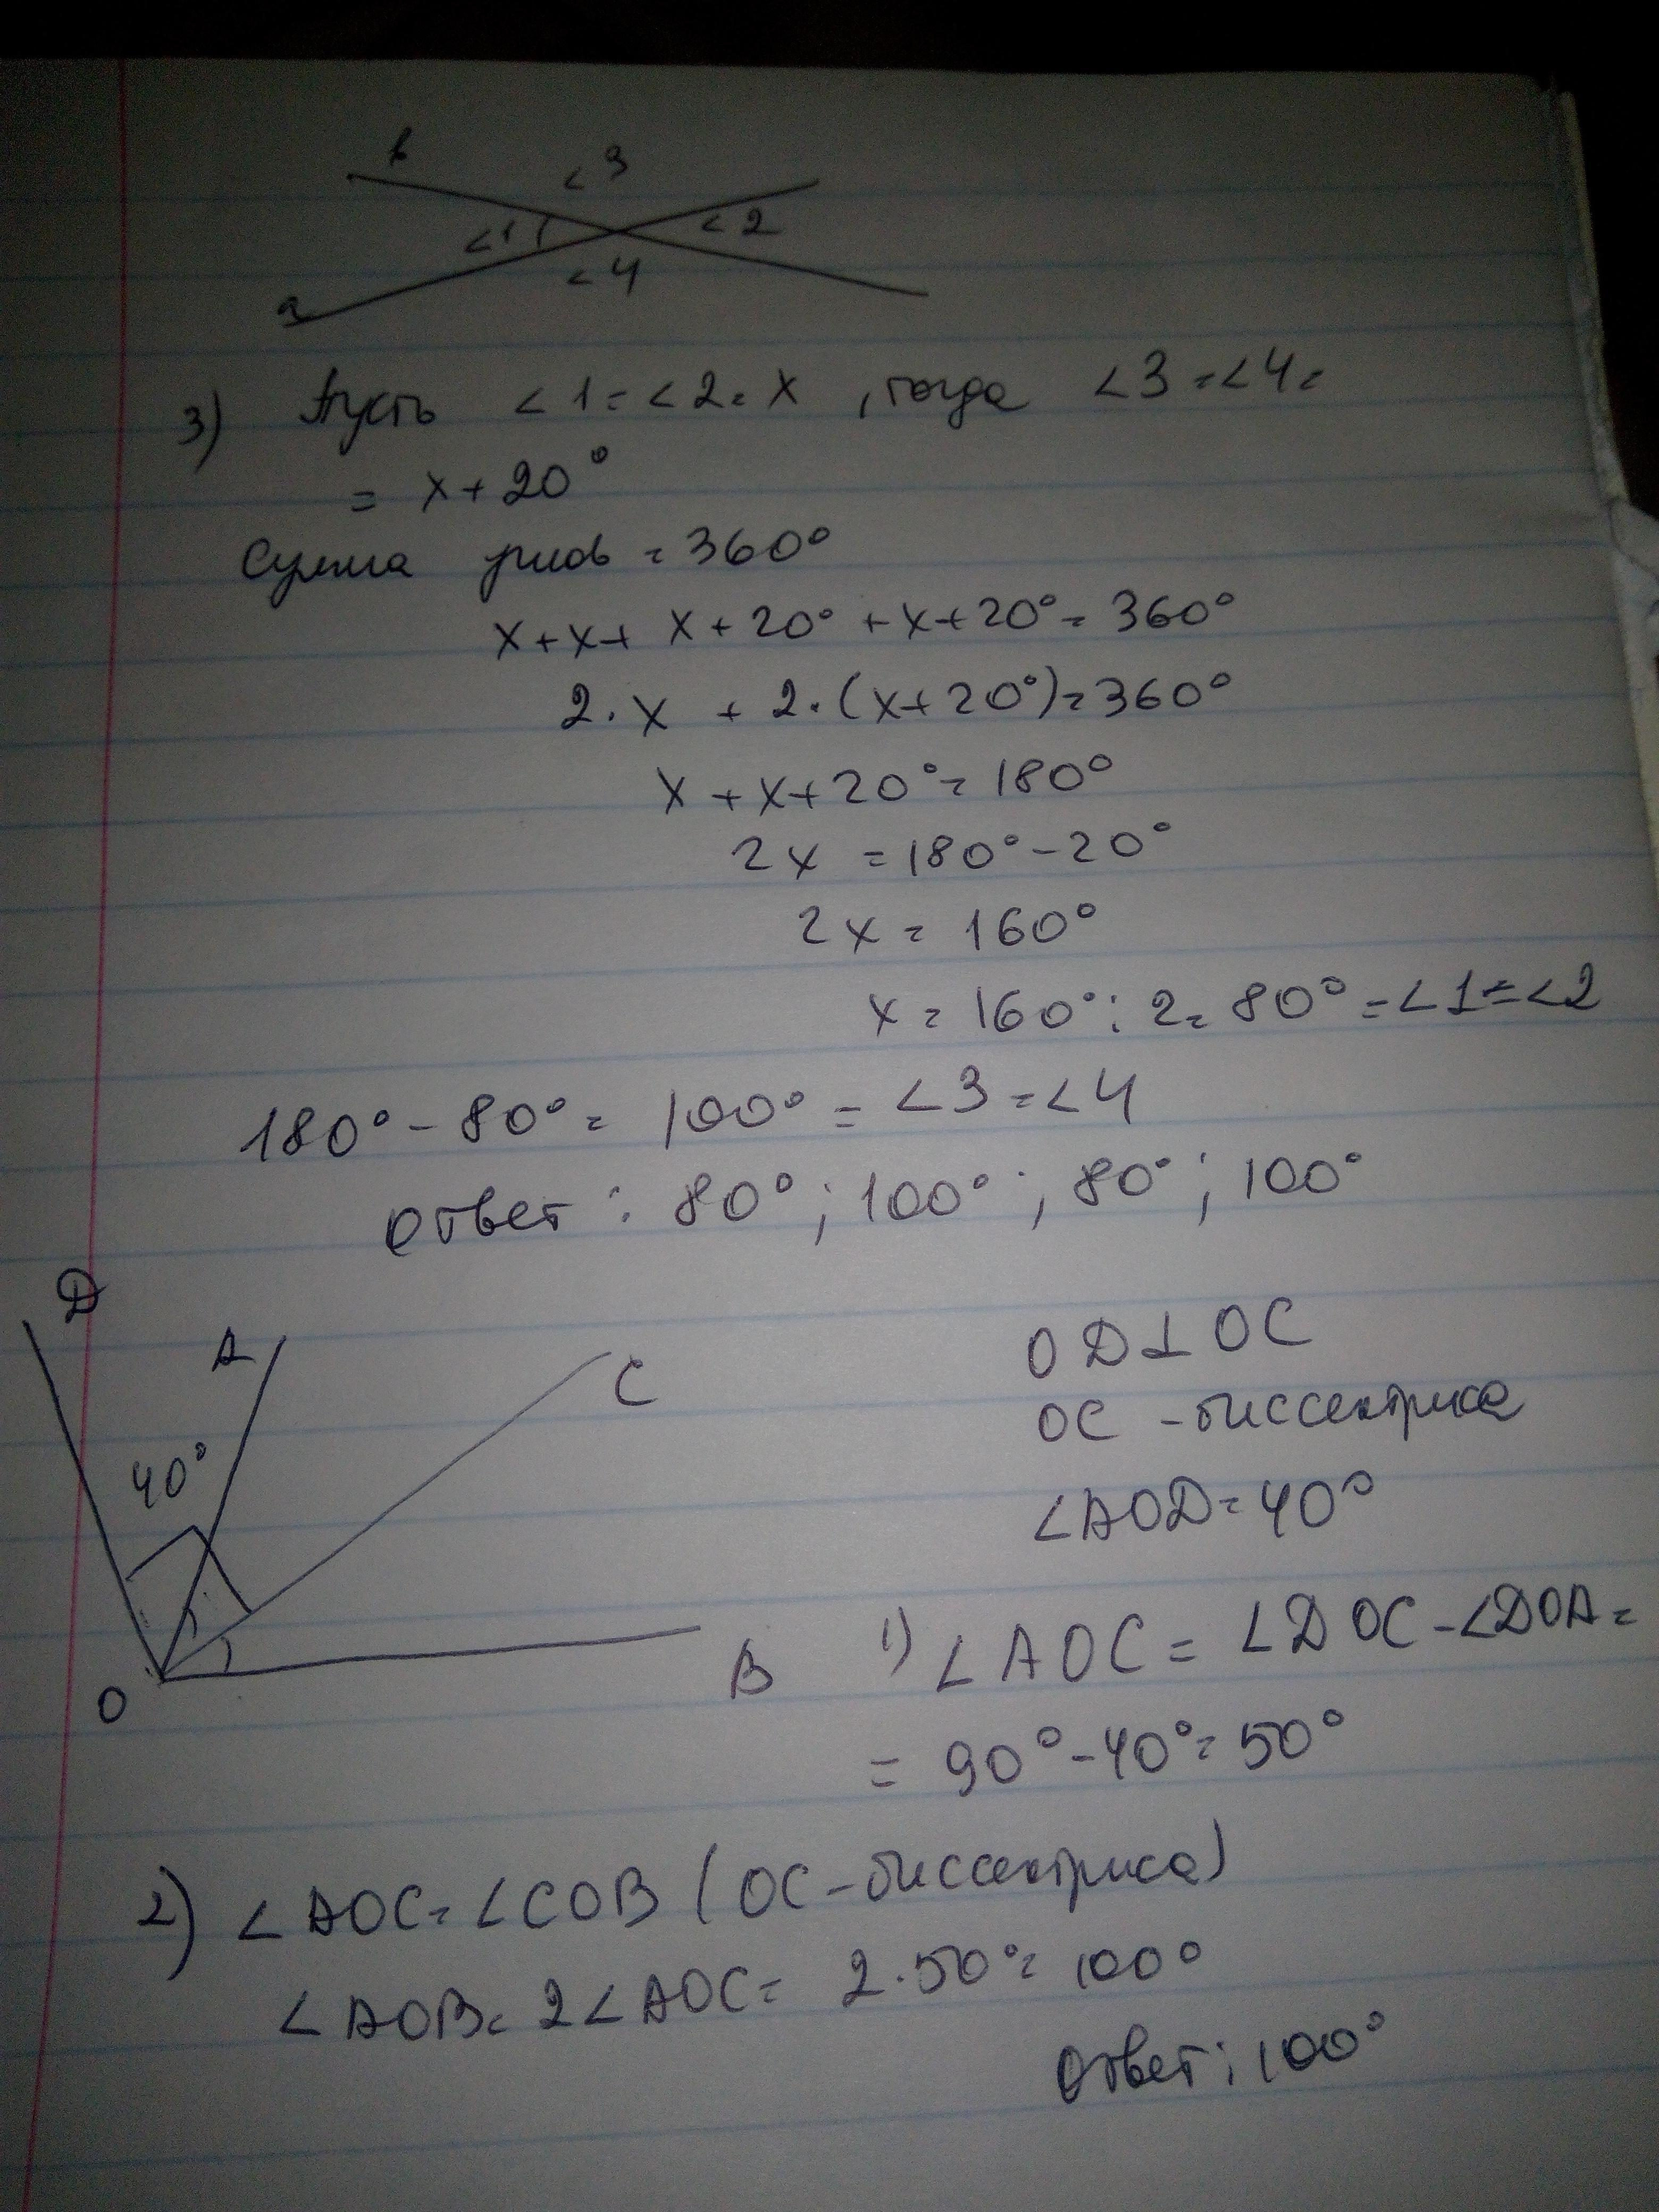 в
∠3
∠1
∠2
∠4
а
3) Пусть ∠1=∠2=x, тогда ∠3=∠4=
= x+20°
Сумма углов = 360°
x+x+x+20°+x+20°=360°
2·x + 2·(x+20°)=360°
x+x+20°=180°
2x=180°-20°
2x=160°
x=160°:2=80°=∠1=∠2
180°-80°=100°=∠3=∠4
Ответ: 80°; 100°; 80°; 100°
D
A
C
40°
O
B
OD⊥OC
OC - биссектриса
∠AOD=40°
1) ∠AOC=∠DOC-∠DOA=
= 90°-40°=50°
2) ∠AOC=∠COB (OC-биссектриса)
∠AOB=2∠AOC=2·50°=100°
Ответ: 100°